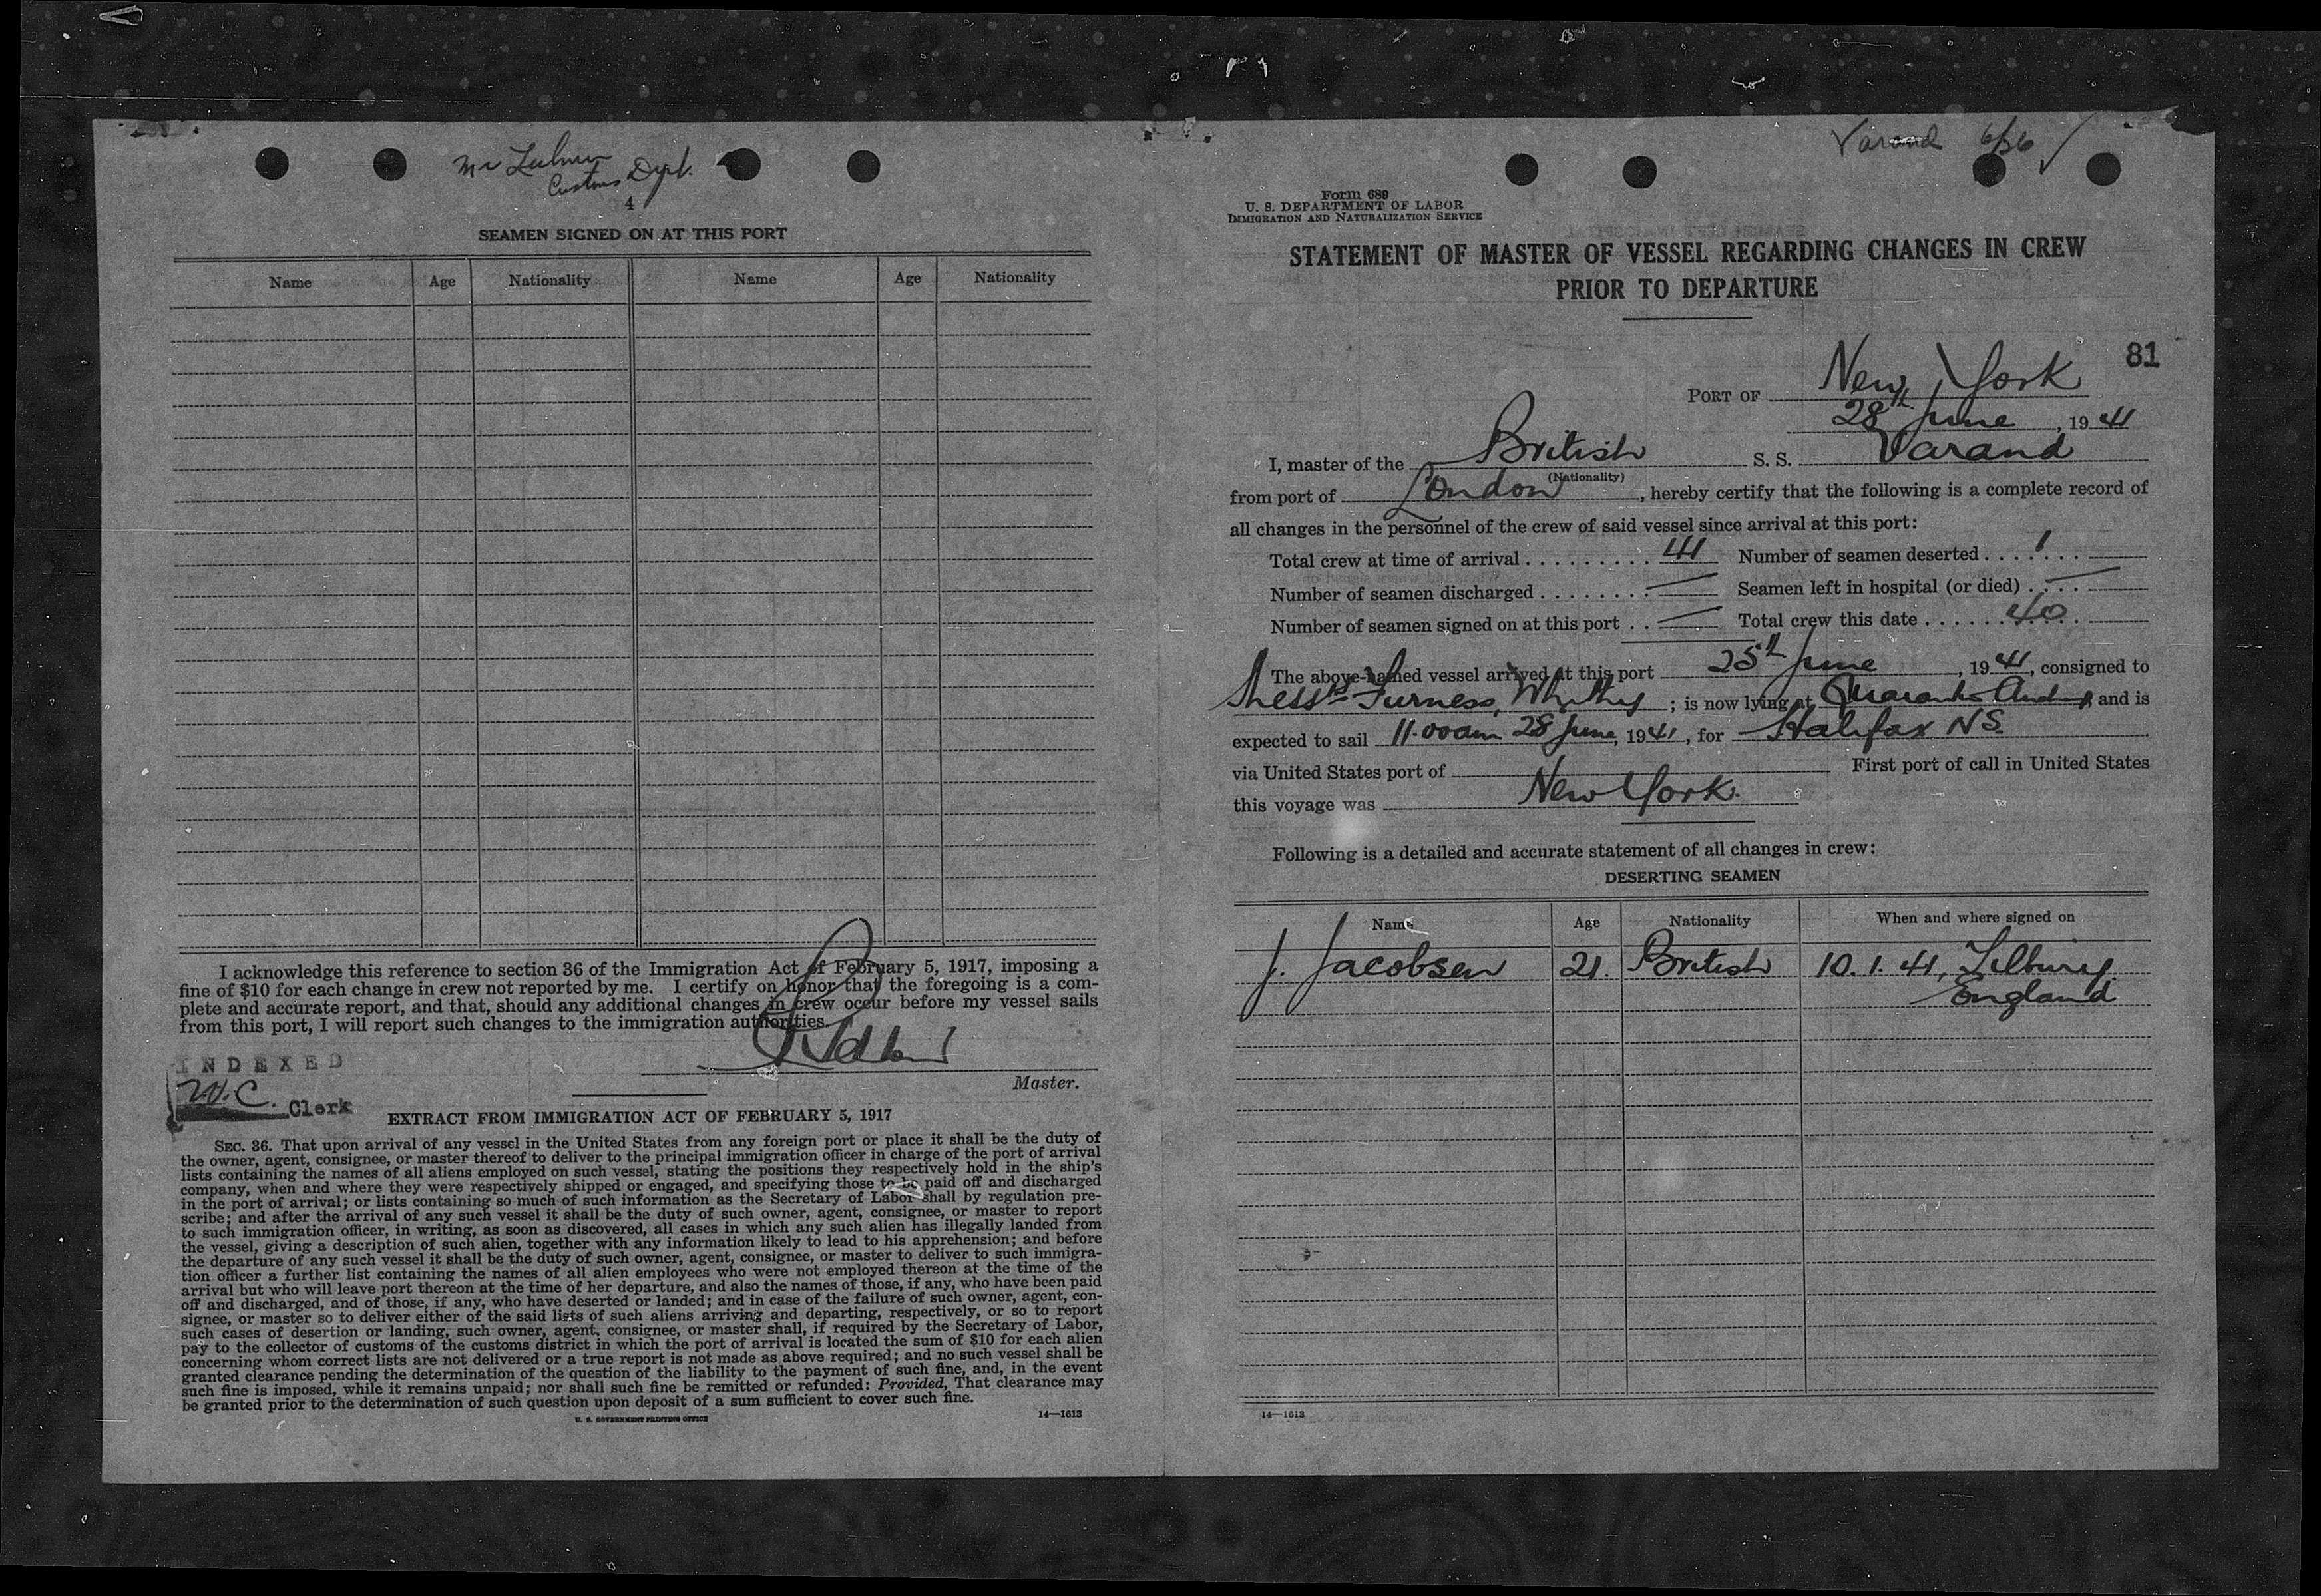 Customs Dept.
4
SEAMEN SIGNED ON AT THIS PORT
Name Age Nationality Name Age Nationality
I acknowledge this reference to section 36 of the Immigration Act of February 5, 1917, imposing a
fine of $10 for each change in crew not reported by me. I certify on honor that the foregoing is a com-
plete and accurate report, and that, should any additional changes in crew occur before my vessel sails
from this port, I will report such changes to the immigration authorities.
Master.
INDEXED
W.C. Clerk
EXTRACT FROM IMMIGRATION ACT OF FEBRUARY 5, 1917
SEC. 36. That upon arrival of any vessel in the United States from any foreign port or place it shall be the duty of
the owner, agent, consignee, or master thereof to deliver to the principal immigration officer in charge of the port of arrival
lists containing the names of all aliens employed on such vessel, stating the positions they respectively hold in the ship's
company, when and where they were respectively shipped or engaged, and specifying those to be paid off and discharged
in the port of arrival; or lists containing so much of such information as the Secretary of Labor shall by regulation pre-
scribe; and after the arrival of any such vessel it shall be the duty of such owner, agent, consignee, or master to report
to such immigration officer, in writing, as soon as discovered, all cases in which any such alien has illegally landed from
the vessel, giving a description of such alien, together with any information likely to lead to his apprehension; and before
the departure of any such vessel it shall be the duty of such owner, agent, consignee, or master to deliver to such immigra-
tion officer a further list containing the names of all alien employees who were not employed thereon at the time of the
arrival but who will leave port thereon at the time of her departure, and also the names of those, if any, who have been paid
off and discharged, and of those, if any, who have deserted or landed; and in case of the failure of such owner, agent, con-
signee, or master so to deliver either of the said lists of such aliens arriving and departing, respectively, or so to report
such cases of desertion or landing, such owner, agent, consignee, or master shall, if required by the Secretary of Labor,
pay to the collector of customs of the customs district in which the port of arrival is located the sum of $10 for each alien
concerning whom correct lists are not delivered or a true report is not made as above required; and no such vessel shall be
granted clearance pending the determination of the question of the liability to the payment of such fine, and, in the event
such fine is imposed, while it remains unpaid; nor shall such fine be remitted or refunded: Provided, That clearance may
be granted prior to the determination of such question upon deposit of a sum sufficient to cover such fine.
U. S. GOVERNMENT PRINTING OFFICE 14—1613
Varand 6/26
Form 689
U. S. DEPARTMENT OF LABOR
IMMIGRATION AND NATURALIZATION SERVICE
STATEMENT OF MASTER OF VESSEL REGARDING CHANGES IN CREW
PRIOR TO DEPARTURE
81
PORT OF New York
28th June, 1941
I, master of the British S. S. Varand
(Nationality)
from port of London, hereby certify that the following is a complete record of
all changes in the personnel of the crew of said vessel since arrival at this port:
Total crew at time of arrival 41 Number of seamen deserted 1
Number of seamen discharged — Seamen left in hospital (or died) —
Number of seamen signed on at this port — Total crew this date 40
The above-named vessel arrived at this port 25th June, 1941, consigned to
Furness, Whithy; is now lying at and is
expected to sail 11.00am 28 June, 1941, for Halifax NS.
via United States port of First port of call in United States
this voyage was New York.
Following is a detailed and accurate statement of all changes in crew:
DESERTING SEAMEN
Name Age Nationality When and where signed on
J. Jacobsen 21. British 10.1.41, Tilbury
England
14—1613